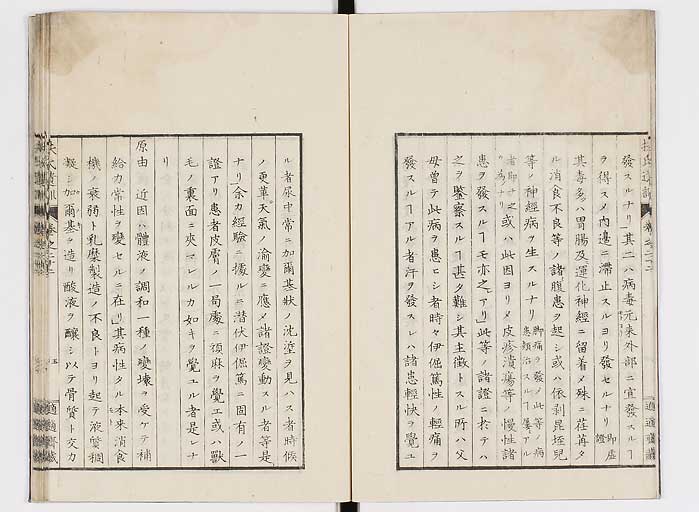 發スルナリ其二ハ病毒元来外部ニ宣發スルヿ
ヲ得スメ内邊ニ滞止スルヨリ發セルナリ即虚證
其毒多ハ胃腸及運化神經ニ留着メ殊ニ荏苒タ
ル消食不良等ノ諸腹患ヲ起シ或ハ依剥昆垤兒
等ノ神經病ヲ生スルナリ脚痛ヲ發メ此等ノ病患頓治スルヿ屡アル
者即廿之ノ為ナリ或ハ此因ヨリメ皮疹潰瘍等ノ慢性諸
患ヲ發スルヿモ亦之アリ此等ノ諸證ニ於テハ
之ヲ鑒察スルヿ甚タ難シ其主徴トスル所ハ父
母曽テ此病ヲ患ヒシ者時々伊倔篤性ノ輕痛ヲ
發スルヿアル者汗ヲ發スレハ諸患輕快ヲ覺ユ
扶氏遺訓
巻之二十二
適適齋藏
ル者尿中常ニ加爾基狀ノ沈堊ヲ見ハス者時候
ノ更革天氣ノ渝變ニ應メ諸證變動スル者等是
ナリ余カ經驗ニ據ルニ潜伏伊倔篤ニ固有ノ一
證アリ患者皮膚ノ一局處ニ頑麻ヲ覺エ或ハ獸
毛ノ裏面ニ夾マレルカ如キヲ覺エル者是レナ
リ
原由 近因ハ體液ノ調和一種ノ變壊ヲ受ケテ補
給力常性ヲ變セルニ在リ其病性タル本来消食
機ノ衰弱ト乳糜製造ノ不良トヨリ起テ液質稠
凝シ加爾基ヲ造リ酸液ヲ釀シ以テ骨質ト交力
適適齋藏